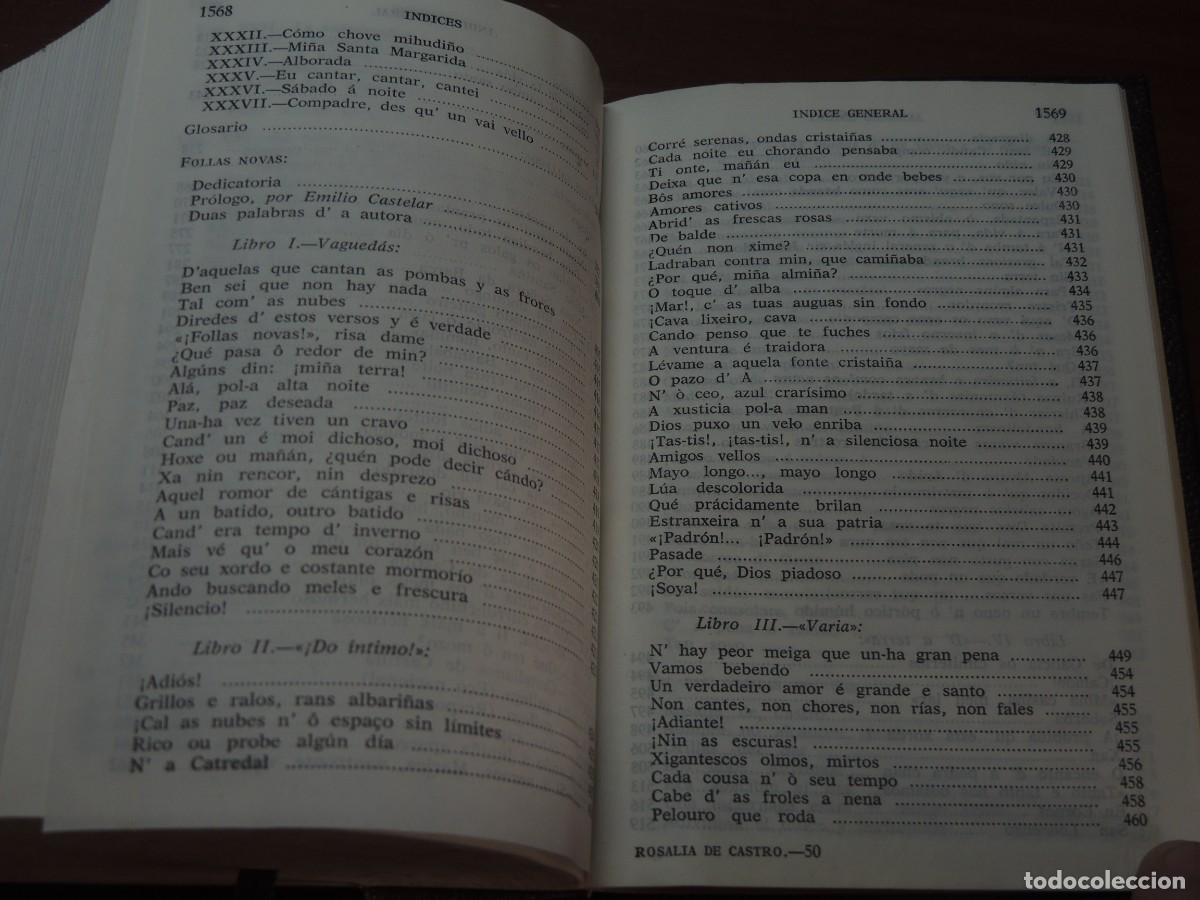 1568
INDICES
XXXII.—Cómo chove mihudiño
XXXIII.—Miña Santa Margarida
XXXIV.—Alborada
XXXV.—Eu cantar, cantar, cantei
XXXVI.—Sábado á noite
XXXVII.—Compadre, des qu' un vai vello
Glosario
FOLLAS NOVAS:
Dedicatoria
Prólogo, por Emilio Castelar
Duas palabras d' a autora
Libro I.—Vaguedás:
D'aquelas que cantan as pombas y as frores
Ben sei que non hay nada
Tal com' as nubes
Diredes d' estos versos y é verdade
«¡Follas novas!», risa dame
¿Qué pasa ô redor de min?
Algúns din: ¡miña terra!
Alá, pol-a alta noite
Paz, paz deseada
Una-ha vez tiven un cravo
Cand' un é moi dichoso, moi dichoso
Hoxe ou mañán, ¿quén pode decir cándo?
Xa nin rencor, nin desprezo
Aquel romor de cántigas e risas
A un batido, outro batido
Cand' era tempo d' inverno
Mais vé qu' o meu corazón
Co seu xordo e costante mormorío
Ando buscando meles e frescura
¡Silencio!
Libro II.—«¡Do íntimo!»:
¡Adiós!
Grillos e ralos, rans albariñas
¡Cal as nubes n' ô espaço sin límites
Rico ou probe algún día
N' a Catredal
INDICE GENERAL
1569
Corré serenas, ondas cristaiñas 428
Cada noite eu chorando pensaba 429
Ti onte, mañán eu 429
Deixa que n' esa copa en onde bebes 430
Bôs amores 430
Amores cativos 430
Abrid' as frescas rosas 431
De balde 431
¿Quén non xime? 431
Ladraban contra min, que camiñaba 432
¿Por qué, miña almiña? 433
O toque d' alba 434
¡Mar!, c' as tuas auguas sin fondo 435
¡Cava lixeiro, cava 436
Cando penso que te fuches 436
A ventura é traidora 436
Lévame a aquela fonte cristaiña 437
O pazo d' A 437
N' ò ceo, azul crarísimo 438
A xusticia pol-a man 438
Dios puxo un velo enriba 439
¡Tas-tis!, ¡tas-tis!, n' a silenciosa noite 439
Amigos vellos 440
Mayo longo..., mayo longo 441
Lúa descolorida 441
Qué prácidamente brilan 442
Estranxeira n' a sua patria 443
«¡Padrón!... ¡Padrón!» 444
Pasade 446
¿Por qué, Dios piadoso 447
¡Soya! 447
Libro III.—«Varia»:
N' hay peor meiga que un-ha gran pena 449
Vamos bebendo 454
Un verdadeiro amor é grande e santo 454
Non cantes, non chores, non rías, non fales 455
¡Adiante! 455
¡Nin as escuras! 455
Xigantescos olmos, mirtos 456
Cada cousa n' ò seu tempo 458
Cabe d' as froles a nena 458
Pelouro que roda 460
ROSALIA DE CASTRO.—50
todocoleccion